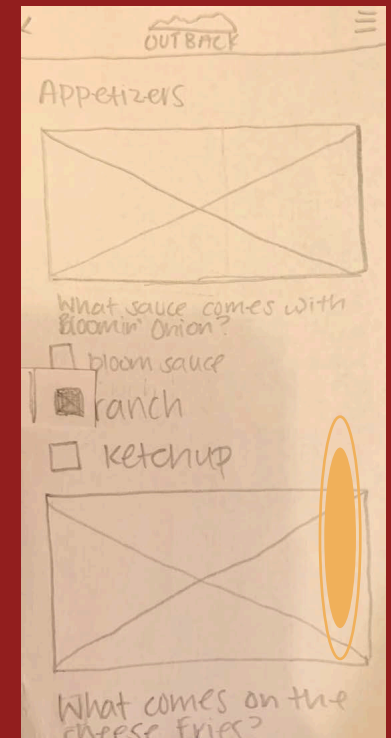 OUTBACK
Appetizers
What sauce comes with
Bloomin' Onion?
bloom sauce
ranch
ketchup
What comes on the
cheese fries?